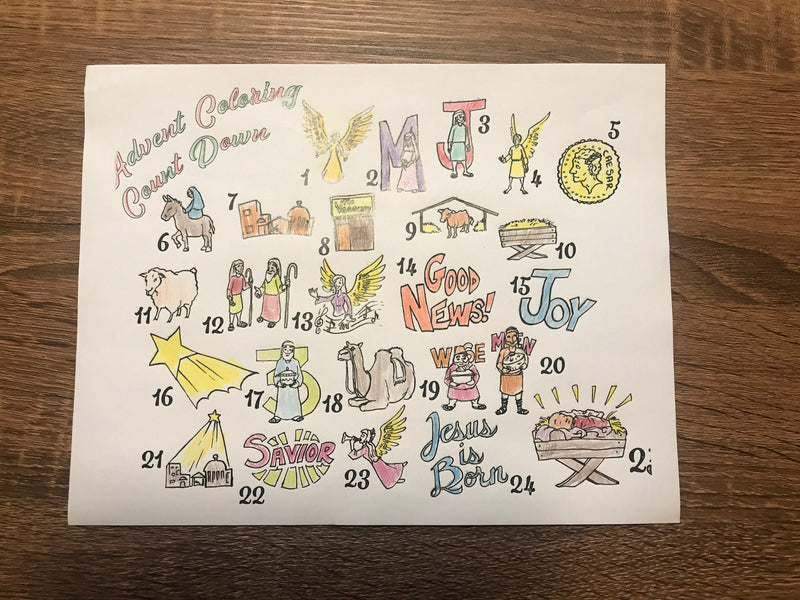 Advent Coloring
Count Down
1
2
M
J
3
4
5
CAESAR
6
7
8
No
Vacancy
9
10
11
12
13
14
GOOD
NEWS!
15
JOY
16
17
3
18
19
WISE MEN
20
21
22
SAVIOR
23
Jesus
is
Born
24
2